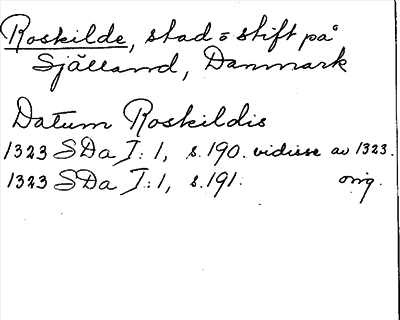 Roskilde, stad = stift på
Själland, Danmark
Datum Roskildis
1323 SDa I: 1, s. 190. vidisse av 1323.
1323 SDa I: 1, s. 191. orig.